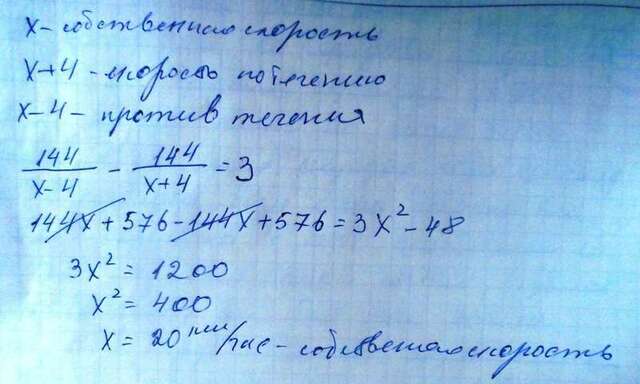 x – собственная скорость
x+4 – скорость по течению
x–4 – против течения
144/(x–4) – 144/(x+4) = 3
144x + 576 – 144x + 576 = 3x² – 48
3x² = 1200
x² = 400
x = 20 км/час – собственная скорость